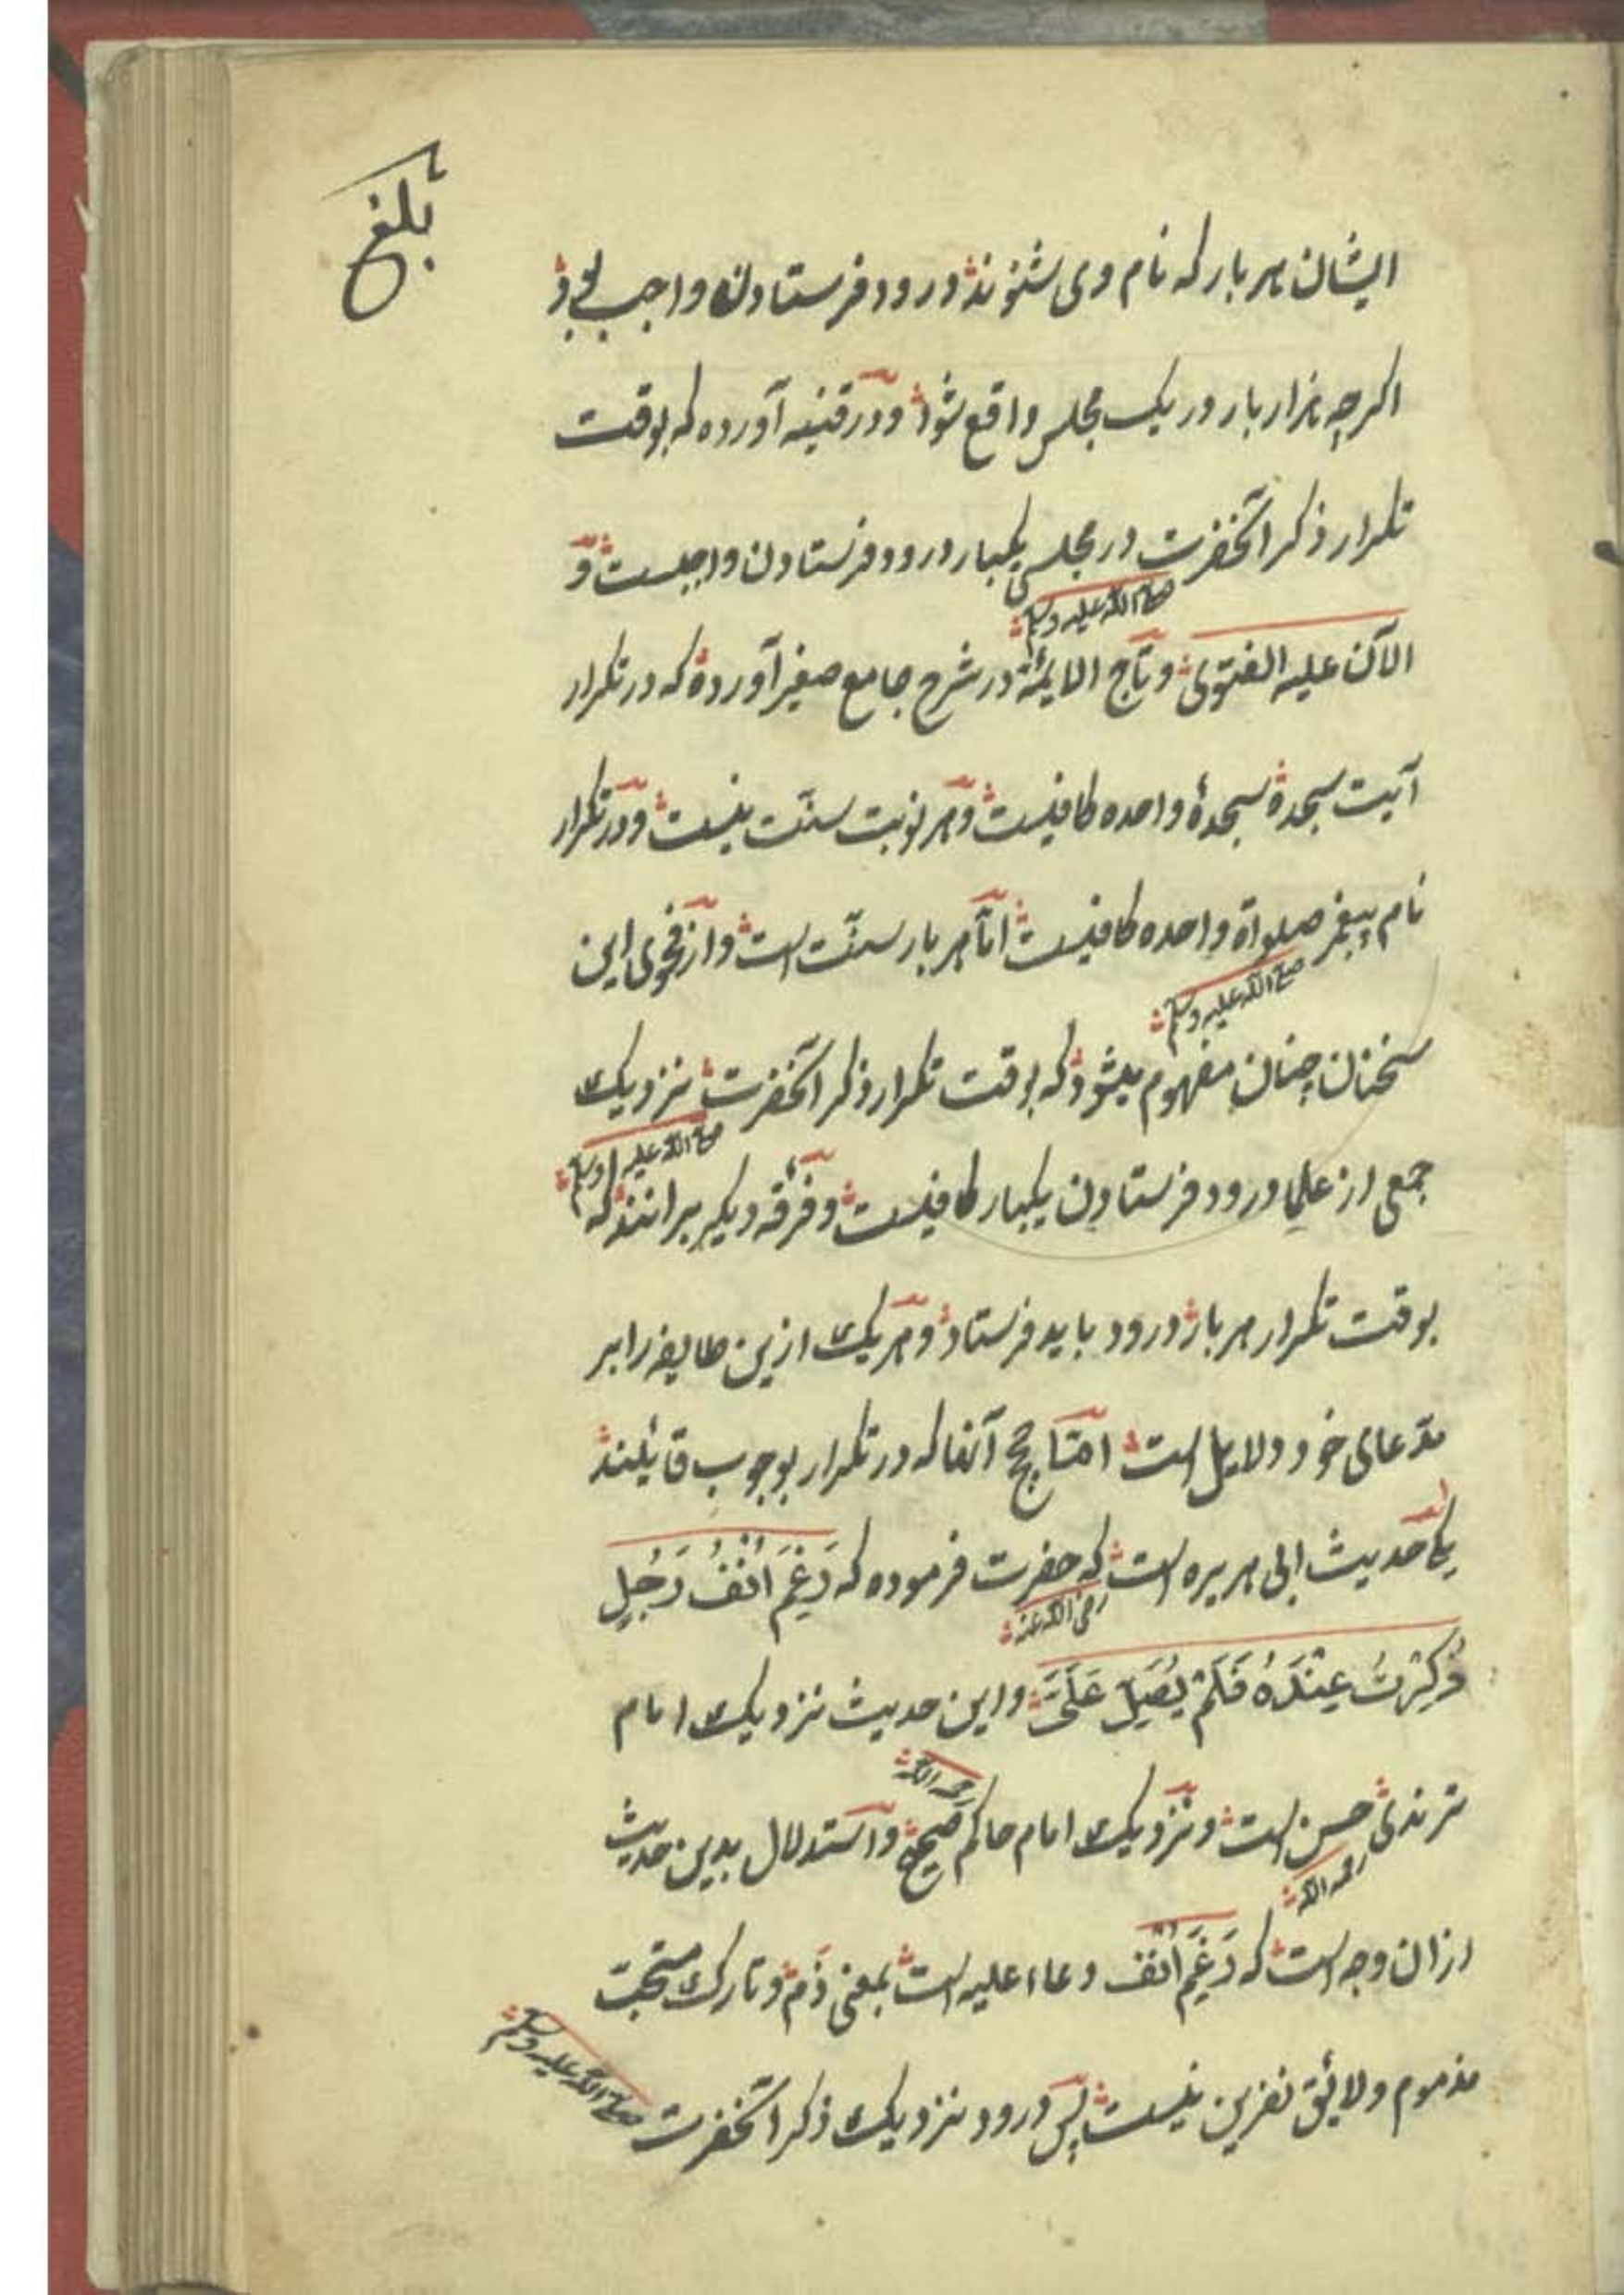 بلغ
ایشان هر بار که نام وی شنوند درود فرستادن واجب بود
اکرچه هزار بار در یک مجلس واقع شود ودر قنیه آورده که بوقت
تکرار ذکر آنحضرت در مجلسی یکبار درود فرستادن واجبست و
صلی الله علیه وسلم
الآن علیه الفتوی وتاج الایمه در شرح جامع صغیر آورده که در تکرار
آیت سجده سجدهٔ واحده کافیست وهر نوبت سنّت نیست ودر تکرار
نام پیغمبر صلواة واحده کافیست امّا هر بار سنّت است واز فحوی این
صلی الله علیه وسلم
سخنان چنان مفهوم میشود که بوقت تکرار ذکر آنحضرت نزدیک
صلی الله علیه وسلم
جمعی از علما درود فرستادن یکبار کافیست وفرقهٔ دیکر برانند که
بوقت تکرار هر بار درود باید فرستاد وهر یک ازین طایفه را بر
مدّعای خود دلایل است امّا حجج آنها که در تکرار بوجوب قائلند
یکی حدیث ابی هریره است که حضرت فرموده که رَغِمَ اَنْفُ رَجُلٍ
رضی الله عنه
ذُکِرْتُ عِنْدَهُ فَلَمْ یُصَلِّ عَلَیَّ واین حدیث نزدیک امام
ترمذی حسن است ونزدیک امام حاکم صحیح واستدلال بدین حدیث
رحمه الله
رحمه الله
ازان وجه است که رَغِمَ اَنْف دعاء علیه است بمعنی ذم وتارک مستحب
مذموم ولائق نفرین نیست پس درود نزدیک ذکر آنحضرت
صلی الله علیه وسلم